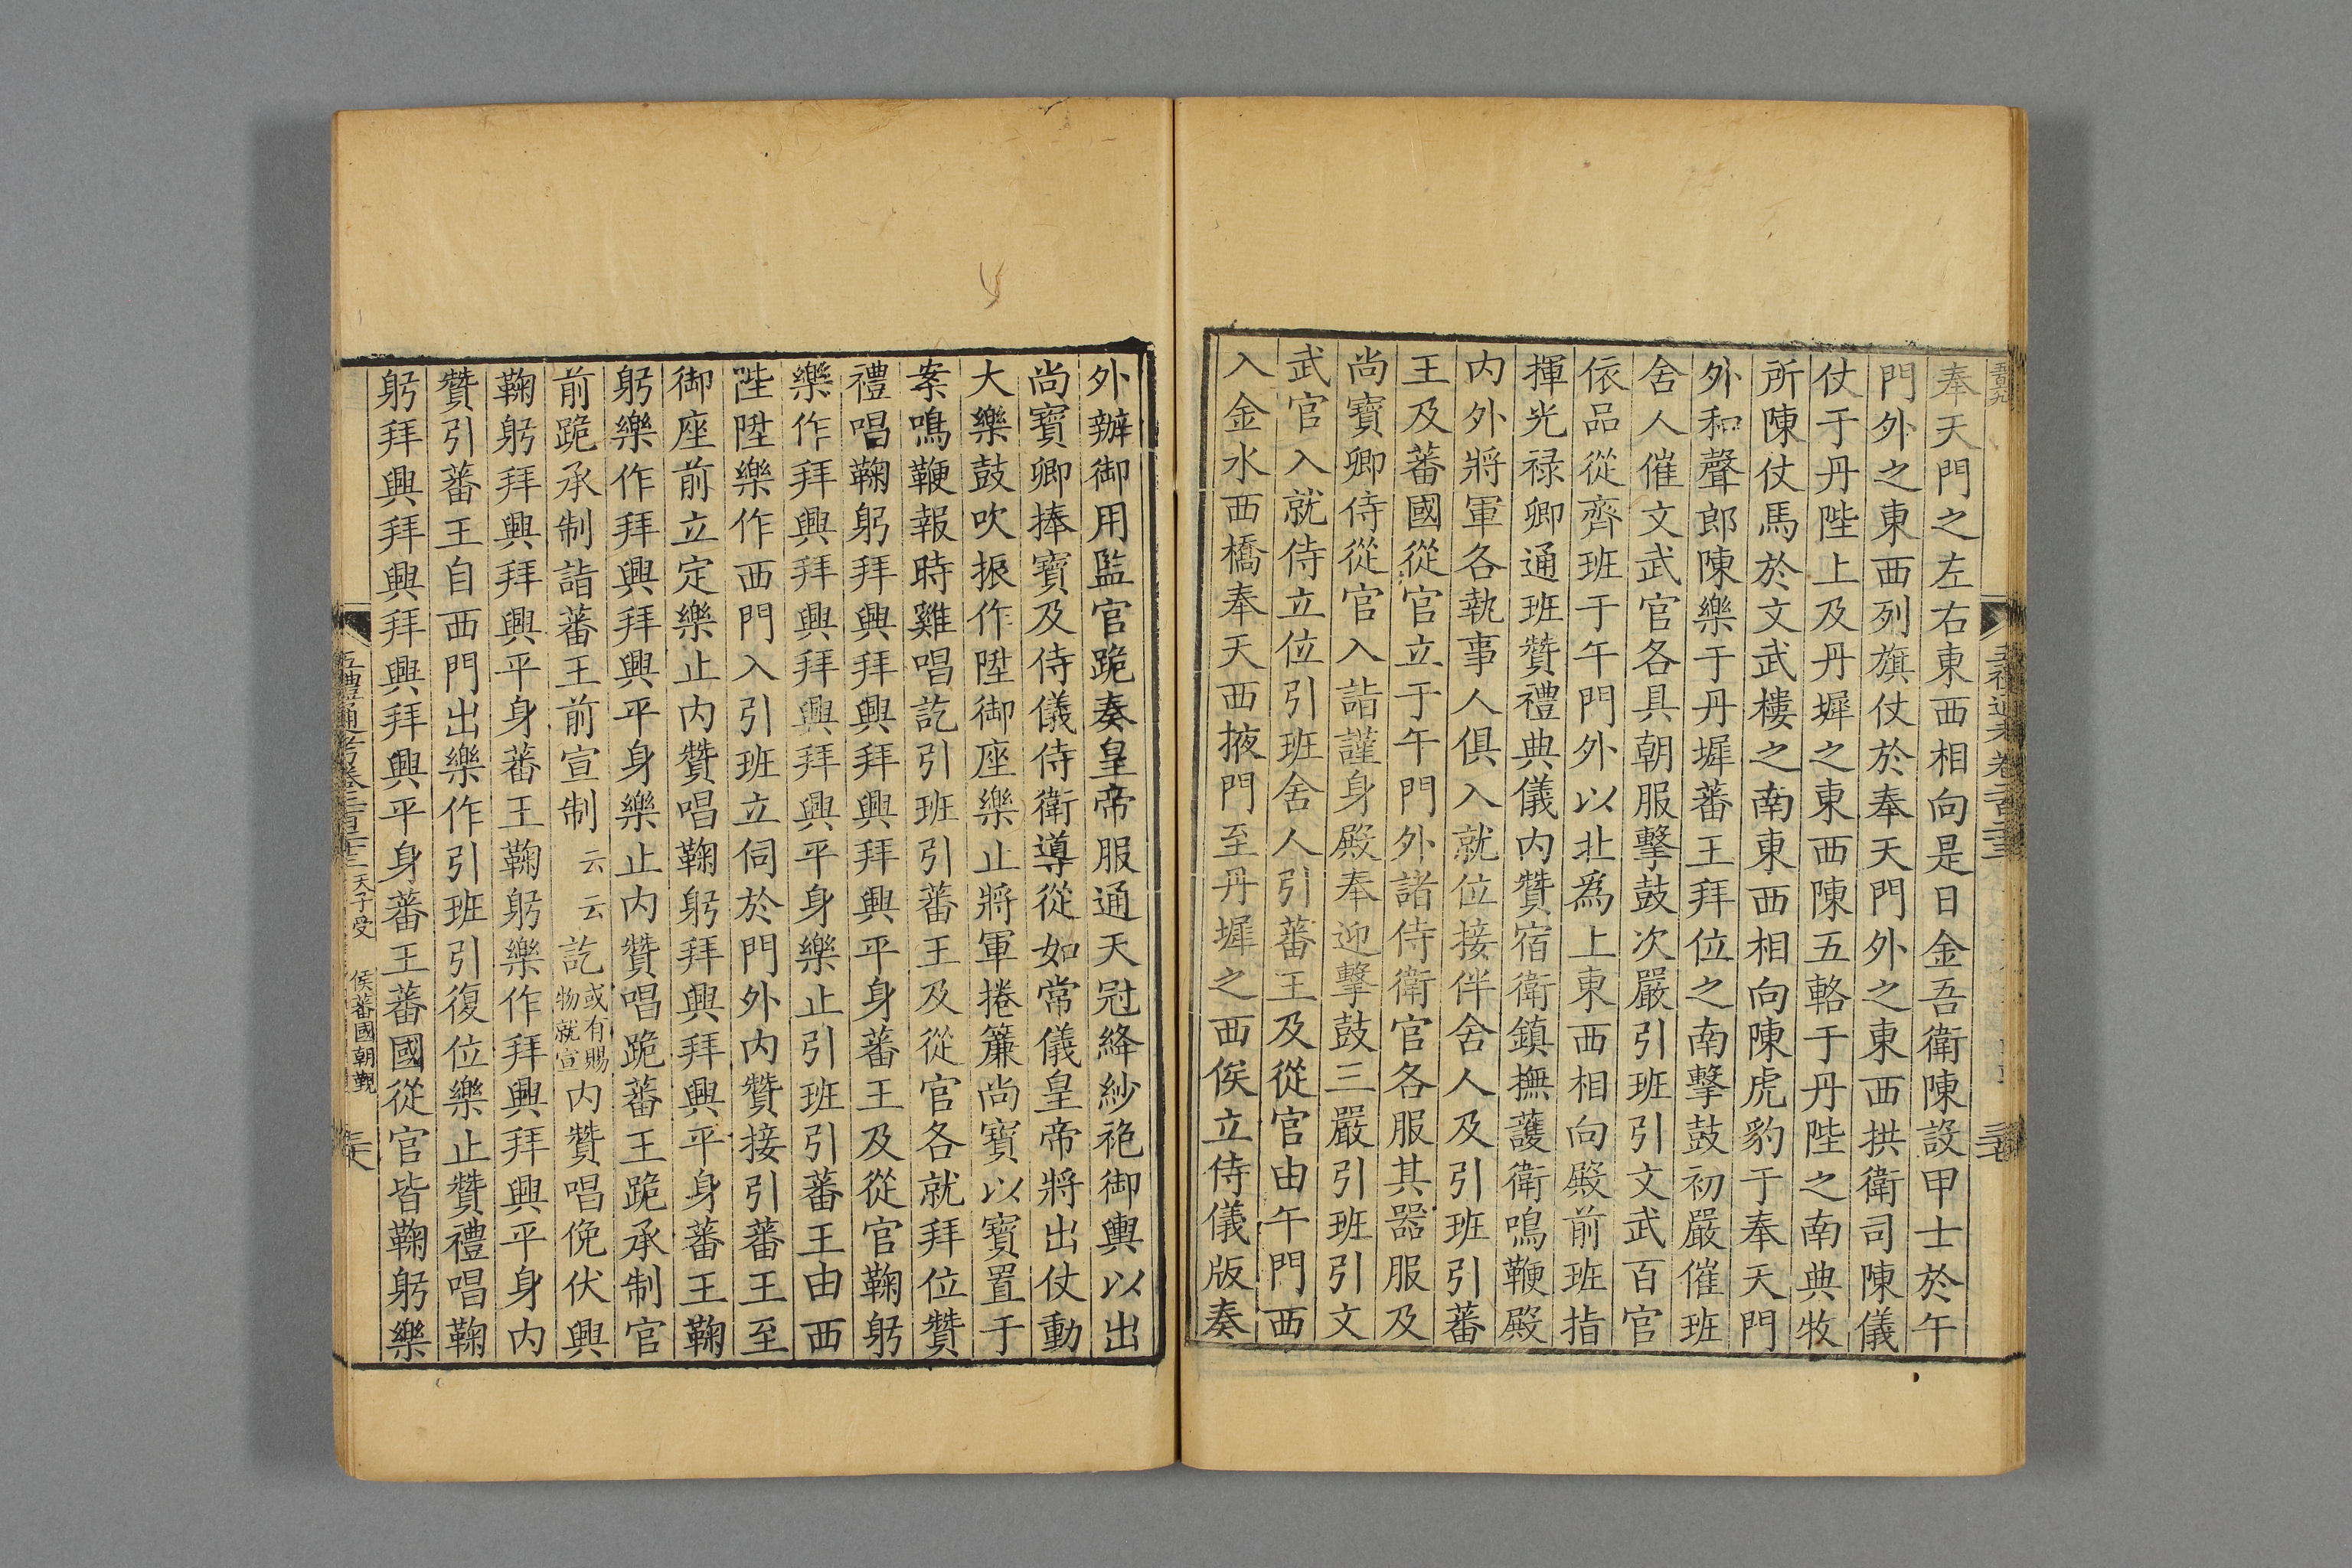 奉天門之左右東西相向是日金吾衛陳設甲士於午
門外之東西列旗仗於奉天門外之東西拱衛司陳儀
仗于丹陛上及丹墀之東西陳五輅于丹陛之南典牧
所陳仗馬於文武樓之南東西相向陳虎豹于奉天門
外和聲郎陳樂于丹墀蕃王拜位之南擊鼓初嚴催班
舍人催文武官各具朝服擊鼓次嚴引班引文武百官
依品從齊班于午門外以北爲上東西相向殿前班指
揮光禄卿通班贊禮典儀内贊宿衛鎮撫護衛鳴鞭殿
内外將軍各執事人俱入就位接伴舍人及引班引蕃
王及蕃國從官立于午門外諸侍衛官各服其器服及
尚寶卿侍從官入詣謹身殿奉迎擊鼓三嚴引班引文
武官入就侍立位引班舍人引蕃王及從官由午門西
入金水西橋奉天西掖門至丹墀之西俟立侍儀版奏
外辦御用監官跪奏皇帝服通天冠絳紗袍御輿以出
尚寶卿捧寶及侍儀侍衛導從如常儀皇帝將出仗動
大樂鼓吹振作陞御座樂止將軍捲簾尚寶以寶置于
案鳴鞭報時雞唱訖引班引蕃王及從官各就拜位贊
禮唱鞠躬拜興拜興拜興拜興平身蕃王及從官鞠躬
樂作拜興拜興拜興拜興平身樂止引班引蕃王由西
陛陞樂作西門入引班立伺於門外内贊接引蕃王至
御座前立定樂止内贊唱鞠躬拜興拜興平身蕃王鞠
躬樂作拜興拜興平身樂止内贊唱跪蕃王跪承制官
前跪承制詣蕃王前宣制云云訖或有賜物就宣内贊唱俛伏興
鞠躬拜興拜興平身蕃王鞠躬樂作拜興拜興平身内
贊引蕃王自西門出樂作引班引復位樂止贊禮唱鞠
躬拜興拜興拜興拜興平身蕃王蕃國從官皆鞠躬樂
五禮通考卷二百二十二 天子受諸侯蕃國朝覲